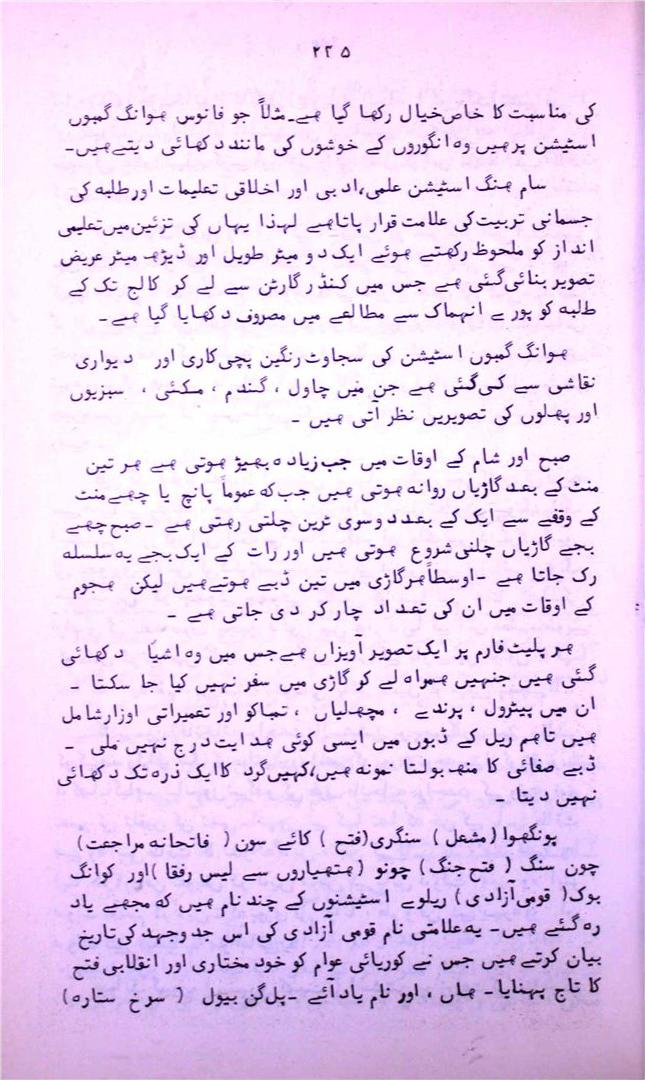 ۲۲۵
کی مناسبت کا خاص خیال رکھا گیا ھے۔مثلاً جو فانوس ھوانگ گمبوں
اسٹیشن پرھیں وہ انگوروں کے خوشوں کی مانند دکھائی دیتے ھیں۔
سام ھنگ اسٹیشن علمی،ادبی اور اخلاقی تعلیمات اورطلبہ کی
جسمانی تربیت کی علامت قرار پاتاھے لہذا یہاں کی تزئین میں تعلیمی
انداز کو ملحوظ رکھتے ھوئے ایک دو میٹر طویل اور ڈیڑھ میٹر عریض
تصویر بنائی گئی ھے جس میں کنڈر گارٹن سے لے کر کالج تک کے
طلبہ کو پورے انہماک سے مطالعے میں مصروف دکھایا گیا ھے۔
ھوانگ گمبوں اسٹیشن کی سجاوٹ رنگین پچی کاری اور دیواری
نقاشی سے کی گئی ھے جن میں چاول ، گندم ، مکئی ، سبزیوں
اور پھلوں کی تصویریں نظر آتی ھیں ۔
صبح اور شام کے اوقات میں جب زیادہ بھیڑ ھوتی ھے ھر تین
منٹ کے بعد گاڑیاں روانہ ھوتی ھیں جب کہ عموماً پانچ یا چھے منٹ
کے وقفے سے ایک کے بعد دوسری ٹرین چلتی رھتی ھے ۔صبح چھے
بجے گاڑیاں چلنی شروع ھوتی ھیں اور رات کے ایک بجے یہ سلسلہ
رک جاتا ھے ۔اوسطاً ھر گاڑی میں تین ڈبے ھوتے ھیں لیکن ھجوم
کے اوقات میں ان کی تعداد چار کر دی جاتی ھے ۔
ھر پلیٹ فارم پر ایک تصویر آویزاں ھے جس میں وہ اشیا دکھائی
گئی ھیں جنہیں ھمراہ لے کر گاڑی میں سفر نہیں کیا جا سکتا ۔
ان میں پیٹرول ، پرندے ، مچھلیاں ، تمباکو اور تعمیراتی اوزار شامل
ھیں تاھم ریل کے ڈبوں میں ایسی کوئی ھدایت درج نہیں ملی ۔
ڈبے صفائی کا منھ بولتا نمونہ ھیں،کہیں گرد کا ایک ذرہ تک دکھائی
نہیں دیتا ۔
پونگھوا (مشعل ) سنگری(فتح ) کائے سون ( فاتحانہ مراجعت)
چون سنگ ( فتح جنگ) چونو (ھتھیاروں سے لیس رفقا )اور کوانگ
بوک( قومی آزادی ) ریلوے اسٹیشنوں کے چند نام ھیں کہ مجھے یاد
رہ گئے ھیں۔ یہ علامتی نام قومی آزادی کی اس جدوجہد کی تاریخ
بیان کرتے ھیں جس نے کوریائی عوام کو خود مختاری اور انقلابی فتح
کا تاج پہنایا۔ ھاں ، اور نام یاد آئے ۔پل گن بیول ( سرخ ستارہ)